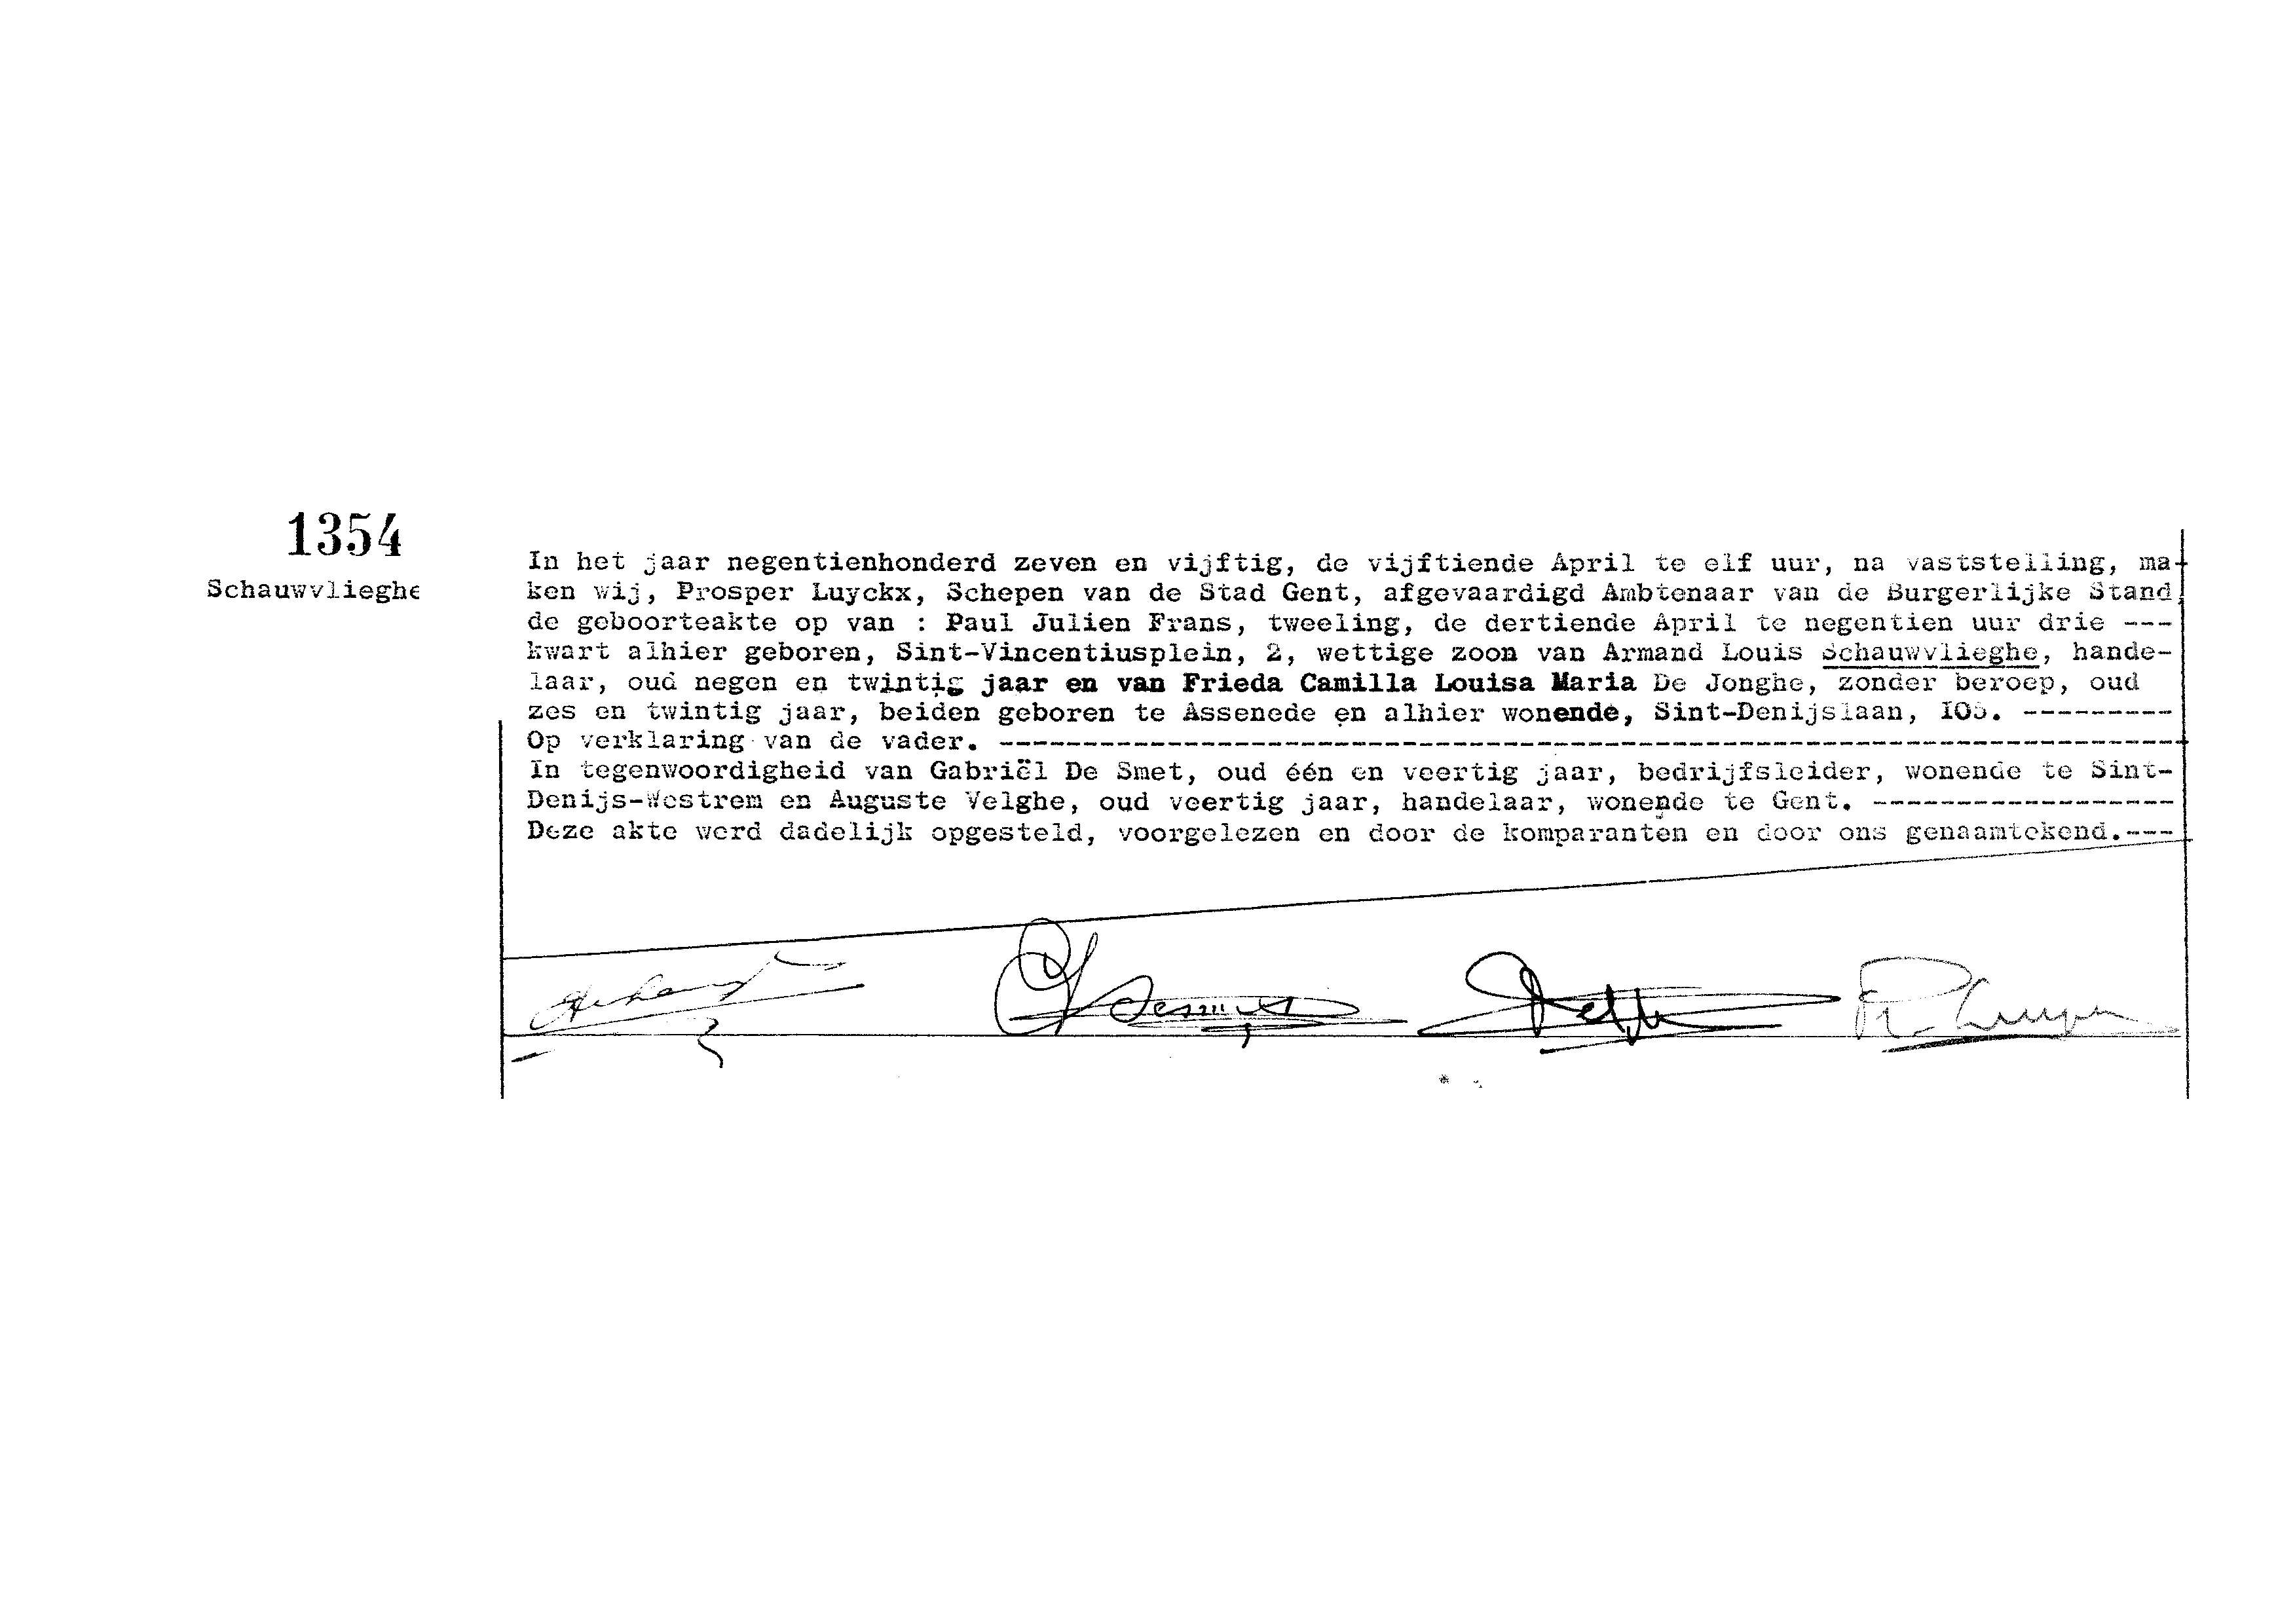 1354
Schauwvlieghe
In het jaar negentienhonderd zeven en vijftig, de vijftiende April te elf uur, na vaststelling, ma-
ken wij, Prosper Luyckx, Schepen van de Stad Gent, afgevaardigd Ambtenaar van de Burgerlijke Stand,
de geboorteakte op van : Paul Julien Frans, tweeling, de dertiende April te negentien uur drie ---
kwart alhier geboren, Sint-Vincentiusplein, 2, wettige zoon van Armand Louis Schauwvlieghe, hande-
laar, oud negen en twintig jaar en van Frieda Camilla Louisa Maria De Jonghe, zonder beroep, oud
zes en twintig jaar, beiden geboren te Assenede en alhier wonende, Sint-Denijslaan, ---------
Op verklaring van de vader. ----------------------------------------------------------------------
In tegenwoordigheid van Gabriël De Smet, oud één en veertig jaar, bedrijfsleider, wonende te Sint-
Denijs-Westrem en Auguste Velghe, oud veertig jaar, handelaar, wonende te Gent. ------------------
Deze akte werd dadelijk opgesteld, voorgelezen en door de komparanten en door ons genaamtekend.---